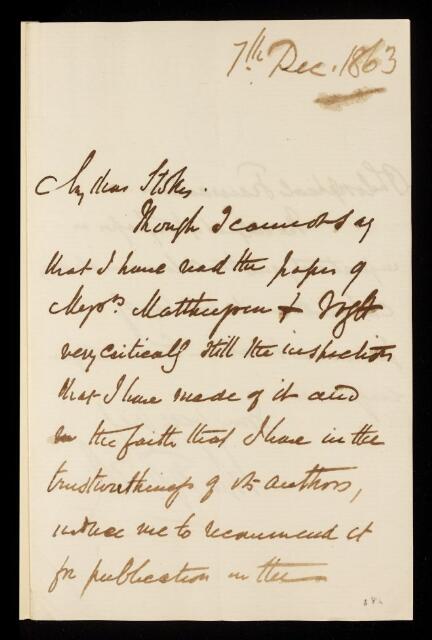 7th Dec. 1863
My dear Stokes.
Though I cannot say
that I have read the paper of
Messrs Matthiessen & Vogt
very critically still the inspection
that I have made of it and
the faith that I have in the
trustworthiness of its authors,
induce me to recommend it
for publication in the